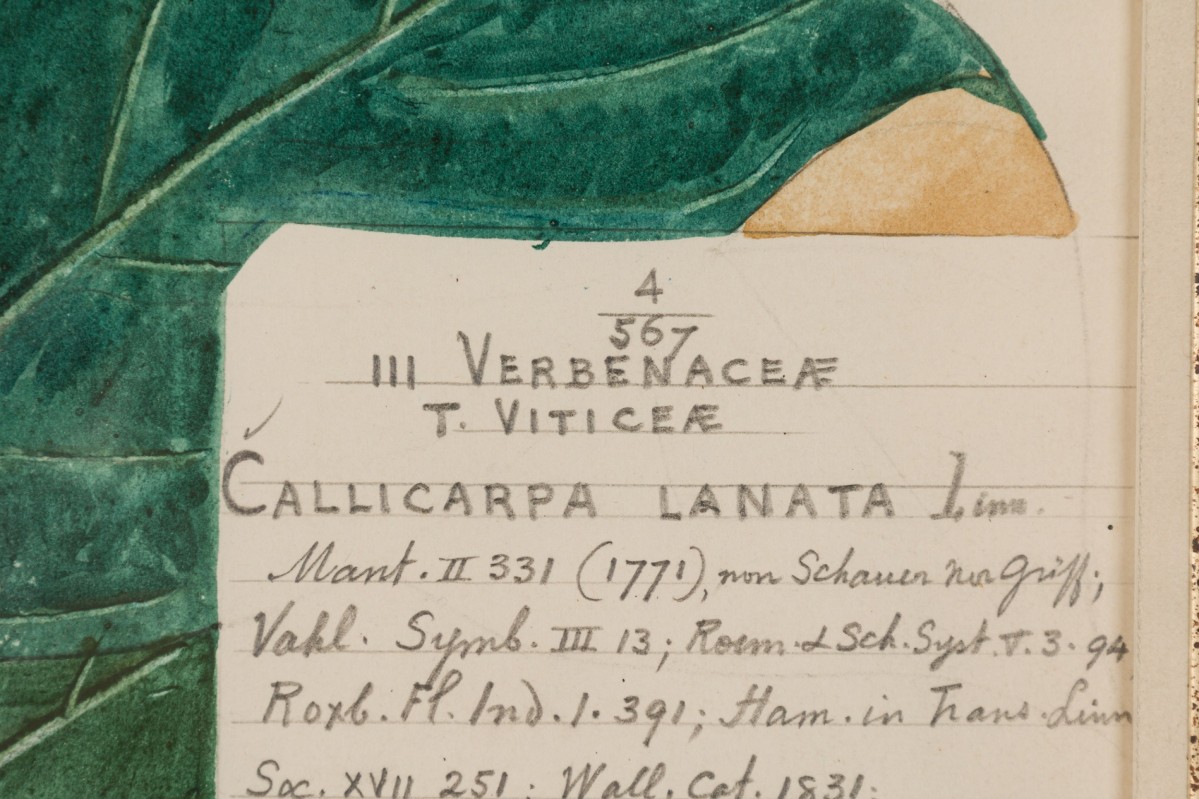 4
567
III VERBENACEÆ
T. VITICEÆ
CALLICARPA LANATA Linn.
Mant. II 331 (1771), non Schauer nor Griff;
Vahl. Symb. III 13; Roem. & Sch. Syst. V. 3. 94
Roxb. Fl. Ind. 1. 391; Ham. in Trans. Linn
Soc. XVII 251; Wall. Cat. 1831;